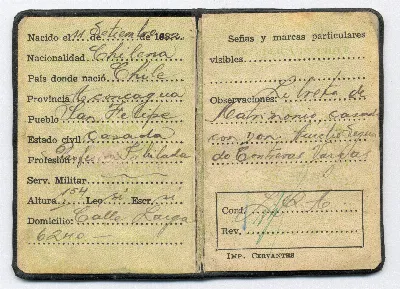 Nacido el 11 de Setiembre de 188
Nacionalidad Chilena
País donde nació Chile
Provincia Aconcagua
Pueblo San Felipe
Estado civil Casada
Profesión Titulada
Serv. Militar
Altura 154 Lee sí Escr. sí
Domicilio: Calle Larga
6240 —
Señas y marcas particulares
visibles
Observaciones: Libreta de
Matrimonio casada
con don
de Contreras Vargas
Cord.
Rev.
IMP. CERVANTES